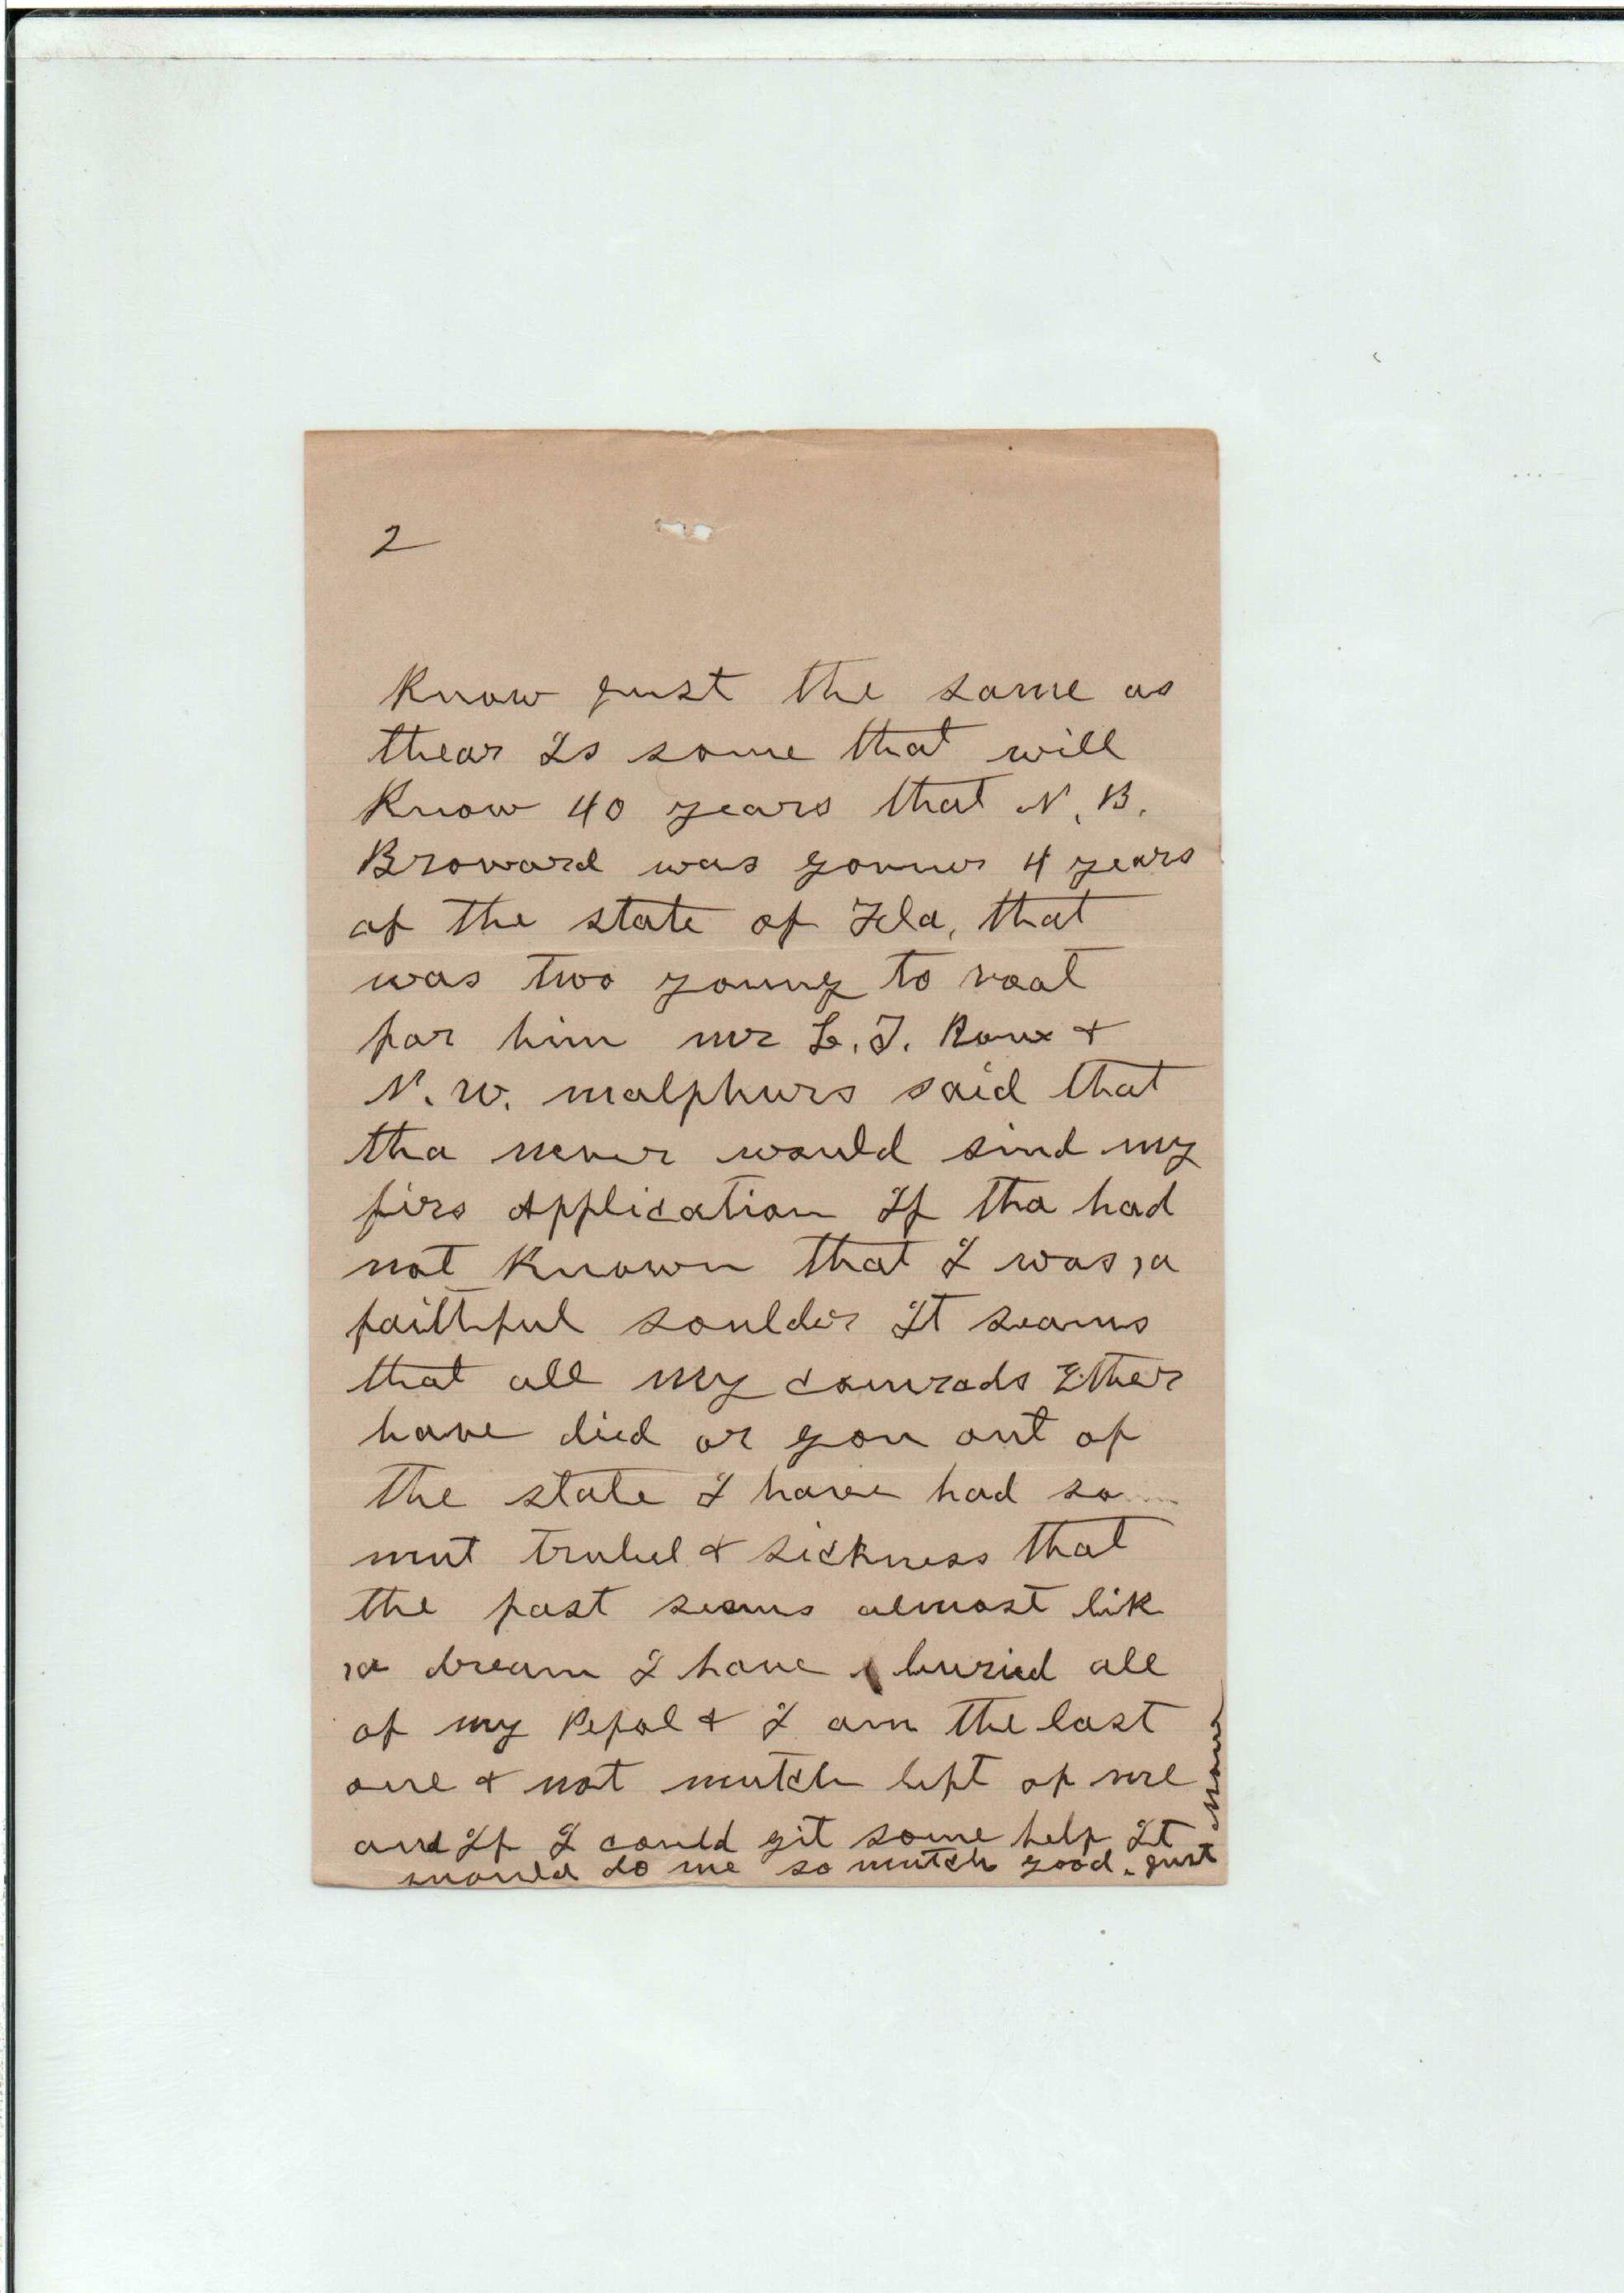 2
Know just the same as
thear Is some that will
Know 40 years that N. B.
Broward was gonner 4 years
of the state of Fla, that
was two young to voat
for him mr L. T. Roux &
N. W. malphurs said that
tha never would sind my
firs Application If tha had
not Known that I was a
faithful soulder It seams
that all my comrads Ether
have died or gon out of
the state I have had so
mut trubel & sickness that
the past seams almost lik
a dream I have buried all
of my Pepol & I am the last
one & not mutch left of me
and If I could git some help It
would do me so mutch good. just
now